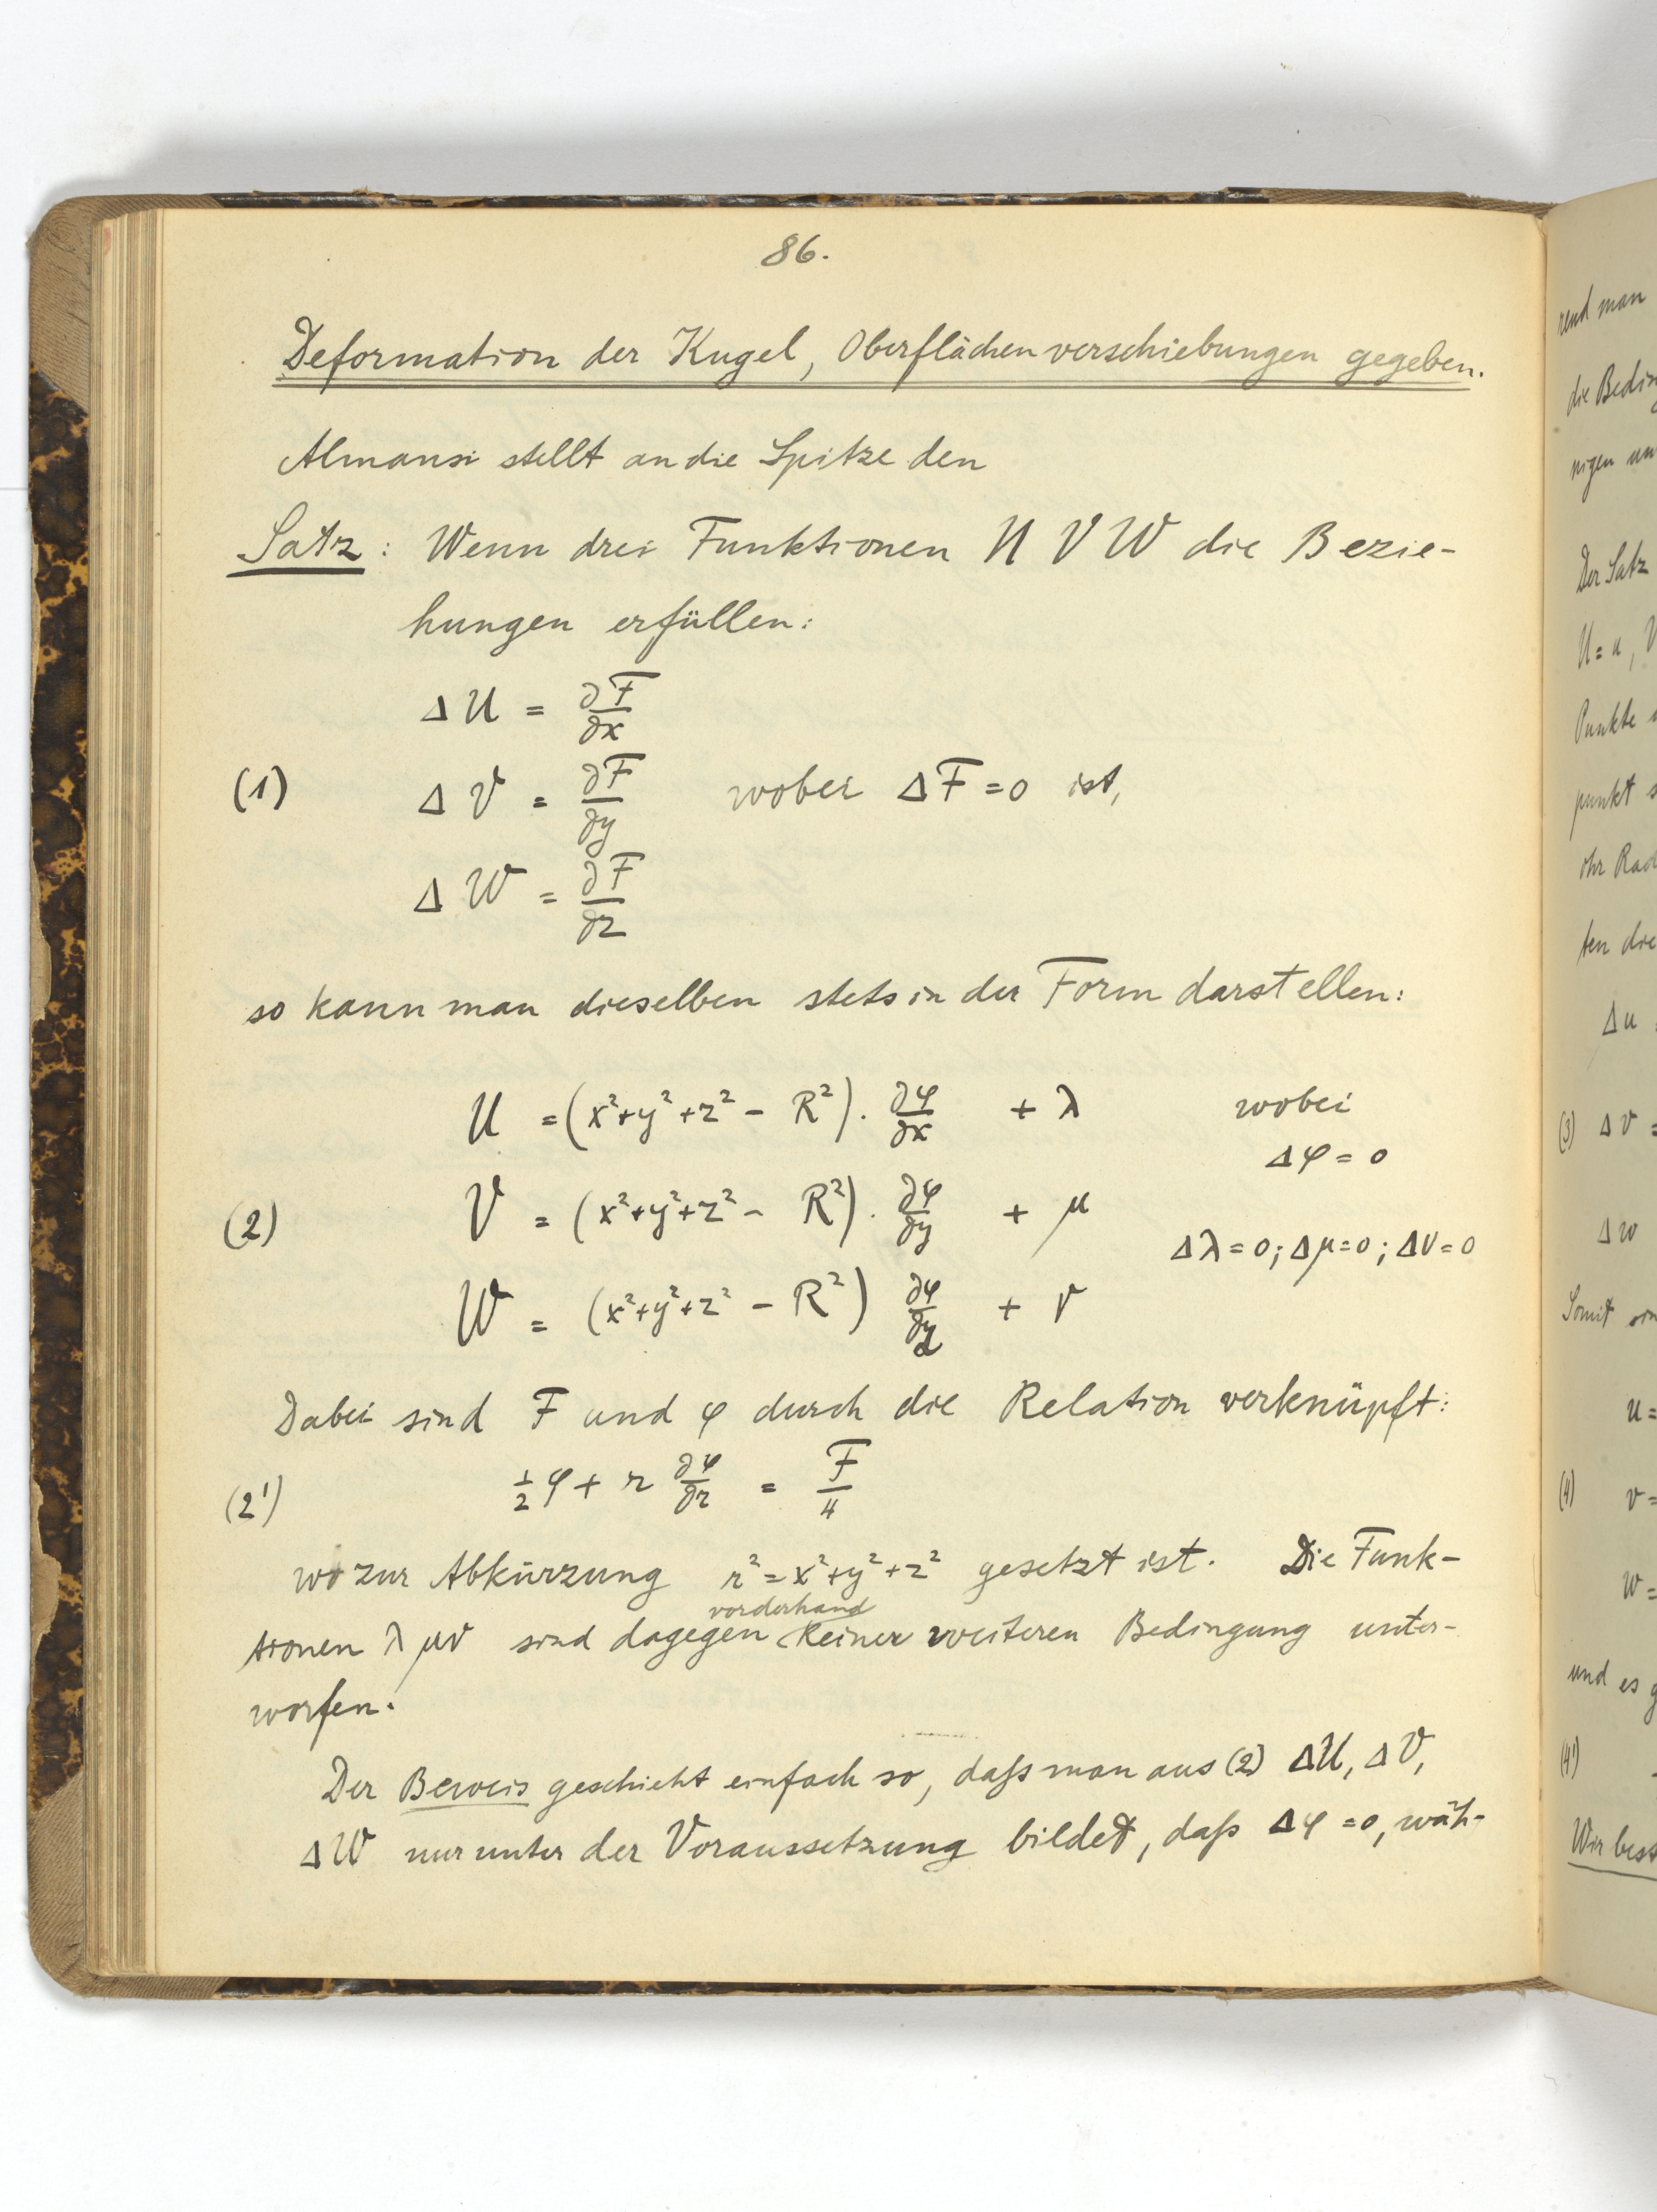 86.
Deformation der Kugel, Oberflächenverschiebungen gegeben.
Almansi stellt an die Spitze den
Satz: Wenn drei Funktionen U V W die Bezie-
hungen erfüllen:
ΔU = ∂F/∂x
(1) ΔV = ∂F/∂y wobei ΔF = 0 ist,
ΔW = ∂F/∂z
so kann man dieselben stets in der Form darstellen:
U = (x²+y²+z² − R²) · ∂φ/∂x + λ wobei
Δφ = 0
(2) V = (x²+y²+z² − R²) · ∂φ/∂y + μ
Δλ = 0; Δμ = 0; Δν = 0
W = (x²+y²+z² − R²) ∂φ/∂z + ν
Dabei sind F und φ durch die Relation verknüpft:
(2') ½φ + r ∂φ/∂r = F/4
wo zur Abkürzung r² = x²+y²+z² gesetzt ist. Die Funk-
vorderhand
tionen λ μ ν sind dagegen keiner weiteren Bedingung unter-
worfen.
Der Beweis geschieht einfach so, daſs man aus (2) ΔU, ΔV,
ΔW nur unter der Voraussetzung bildet, daſs Δφ = 0, wäh-
rend man
die Bedin
nigen
Der Satz
U = u, V
Punkte
punkt s
ihr Rad
ten die
Δu =
(3) Δv =
Δw
Somit
u =
(4) v =
w =
und es g
(4')
Wir best